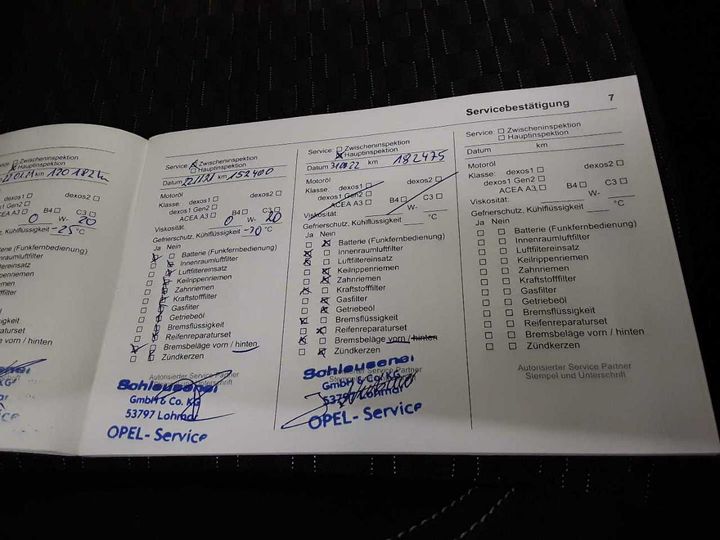 Servicebestätigung 7
Zwischeninspektion
Hauptinspektion
km 120
dexos1
dexos2
dexos1 Gen2
ACEA A3
B4
C3
0 W- 20
Kühlflüssigkeit -25 °C
Batterie (Funkfernbedienung)
GmbH & Co. KG
Lohmar
Service
Service: Zwischeninspektion
Hauptinspektion
Datum km 152400
Motoröl
Klasse: dexos1 dexos2
dexos1 Gen2
ACEA A3 B4 C3
Viskosität: 0 W- 20
Gefrierschutz, Kühlflüssigkeit -30 °C
Ja Nein
Batterie (Funkfernbedienung)
Innenraumluftfilter
Luftfiltereinsatz
Keilrippenriemen
Zahnriemen
Kraftstofffilter
Gasfilter
Getriebeöl
Bremsflüssigkeit
Reifenreparaturset
Bremsbeläge vorn / hinten
Zündkerzen
Autorisierter Service Partner
GmbH & Co. KG
53797 Lohmar
OPEL- Service
Service: Zwischeninspektion
Hauptinspektion
Datum km 182475
Motoröl
Klasse: dexos1 dexos2
dexos1 Gen2
ACEA A3 B4 C3
Viskosität: W-
Gefrierschutz, Kühlflüssigkeit °C
Ja Nein
Batterie (Funkfernbedienung)
Innenraumluftfilter
Luftfiltereinsatz
Keilrippenriemen
Zahnriemen
Kraftstofffilter
Gasfilter
Getriebeöl
Bremsflüssigkeit
Reifenreparaturset
Bremsbeläge vorn / hinten
Zündkerzen
Service Partner
GmbH & Co. KG
53797 Lohmar
OPEL- Service
Service: Zwischeninspektion
Hauptinspektion
Datum km
Motoröl
Klasse: dexos1 dexos2
dexos1 Gen2
ACEA A3 B4 C3
Viskosität: W-
Gefrierschutz, Kühlflüssigkeit °C
Ja Nein
Batterie (Funkfernbedienung)
Innenraumluftfilter
Luftfiltereinsatz
Keilrippenriemen
Zahnriemen
Kraftstofffilter
Gasfilter
Getriebeöl
Bremsflüssigkeit
Reifenreparaturset
Bremsbeläge vorn / hinten
Zündkerzen
Autorisierter Service Partner
Stempel und Unterschrift